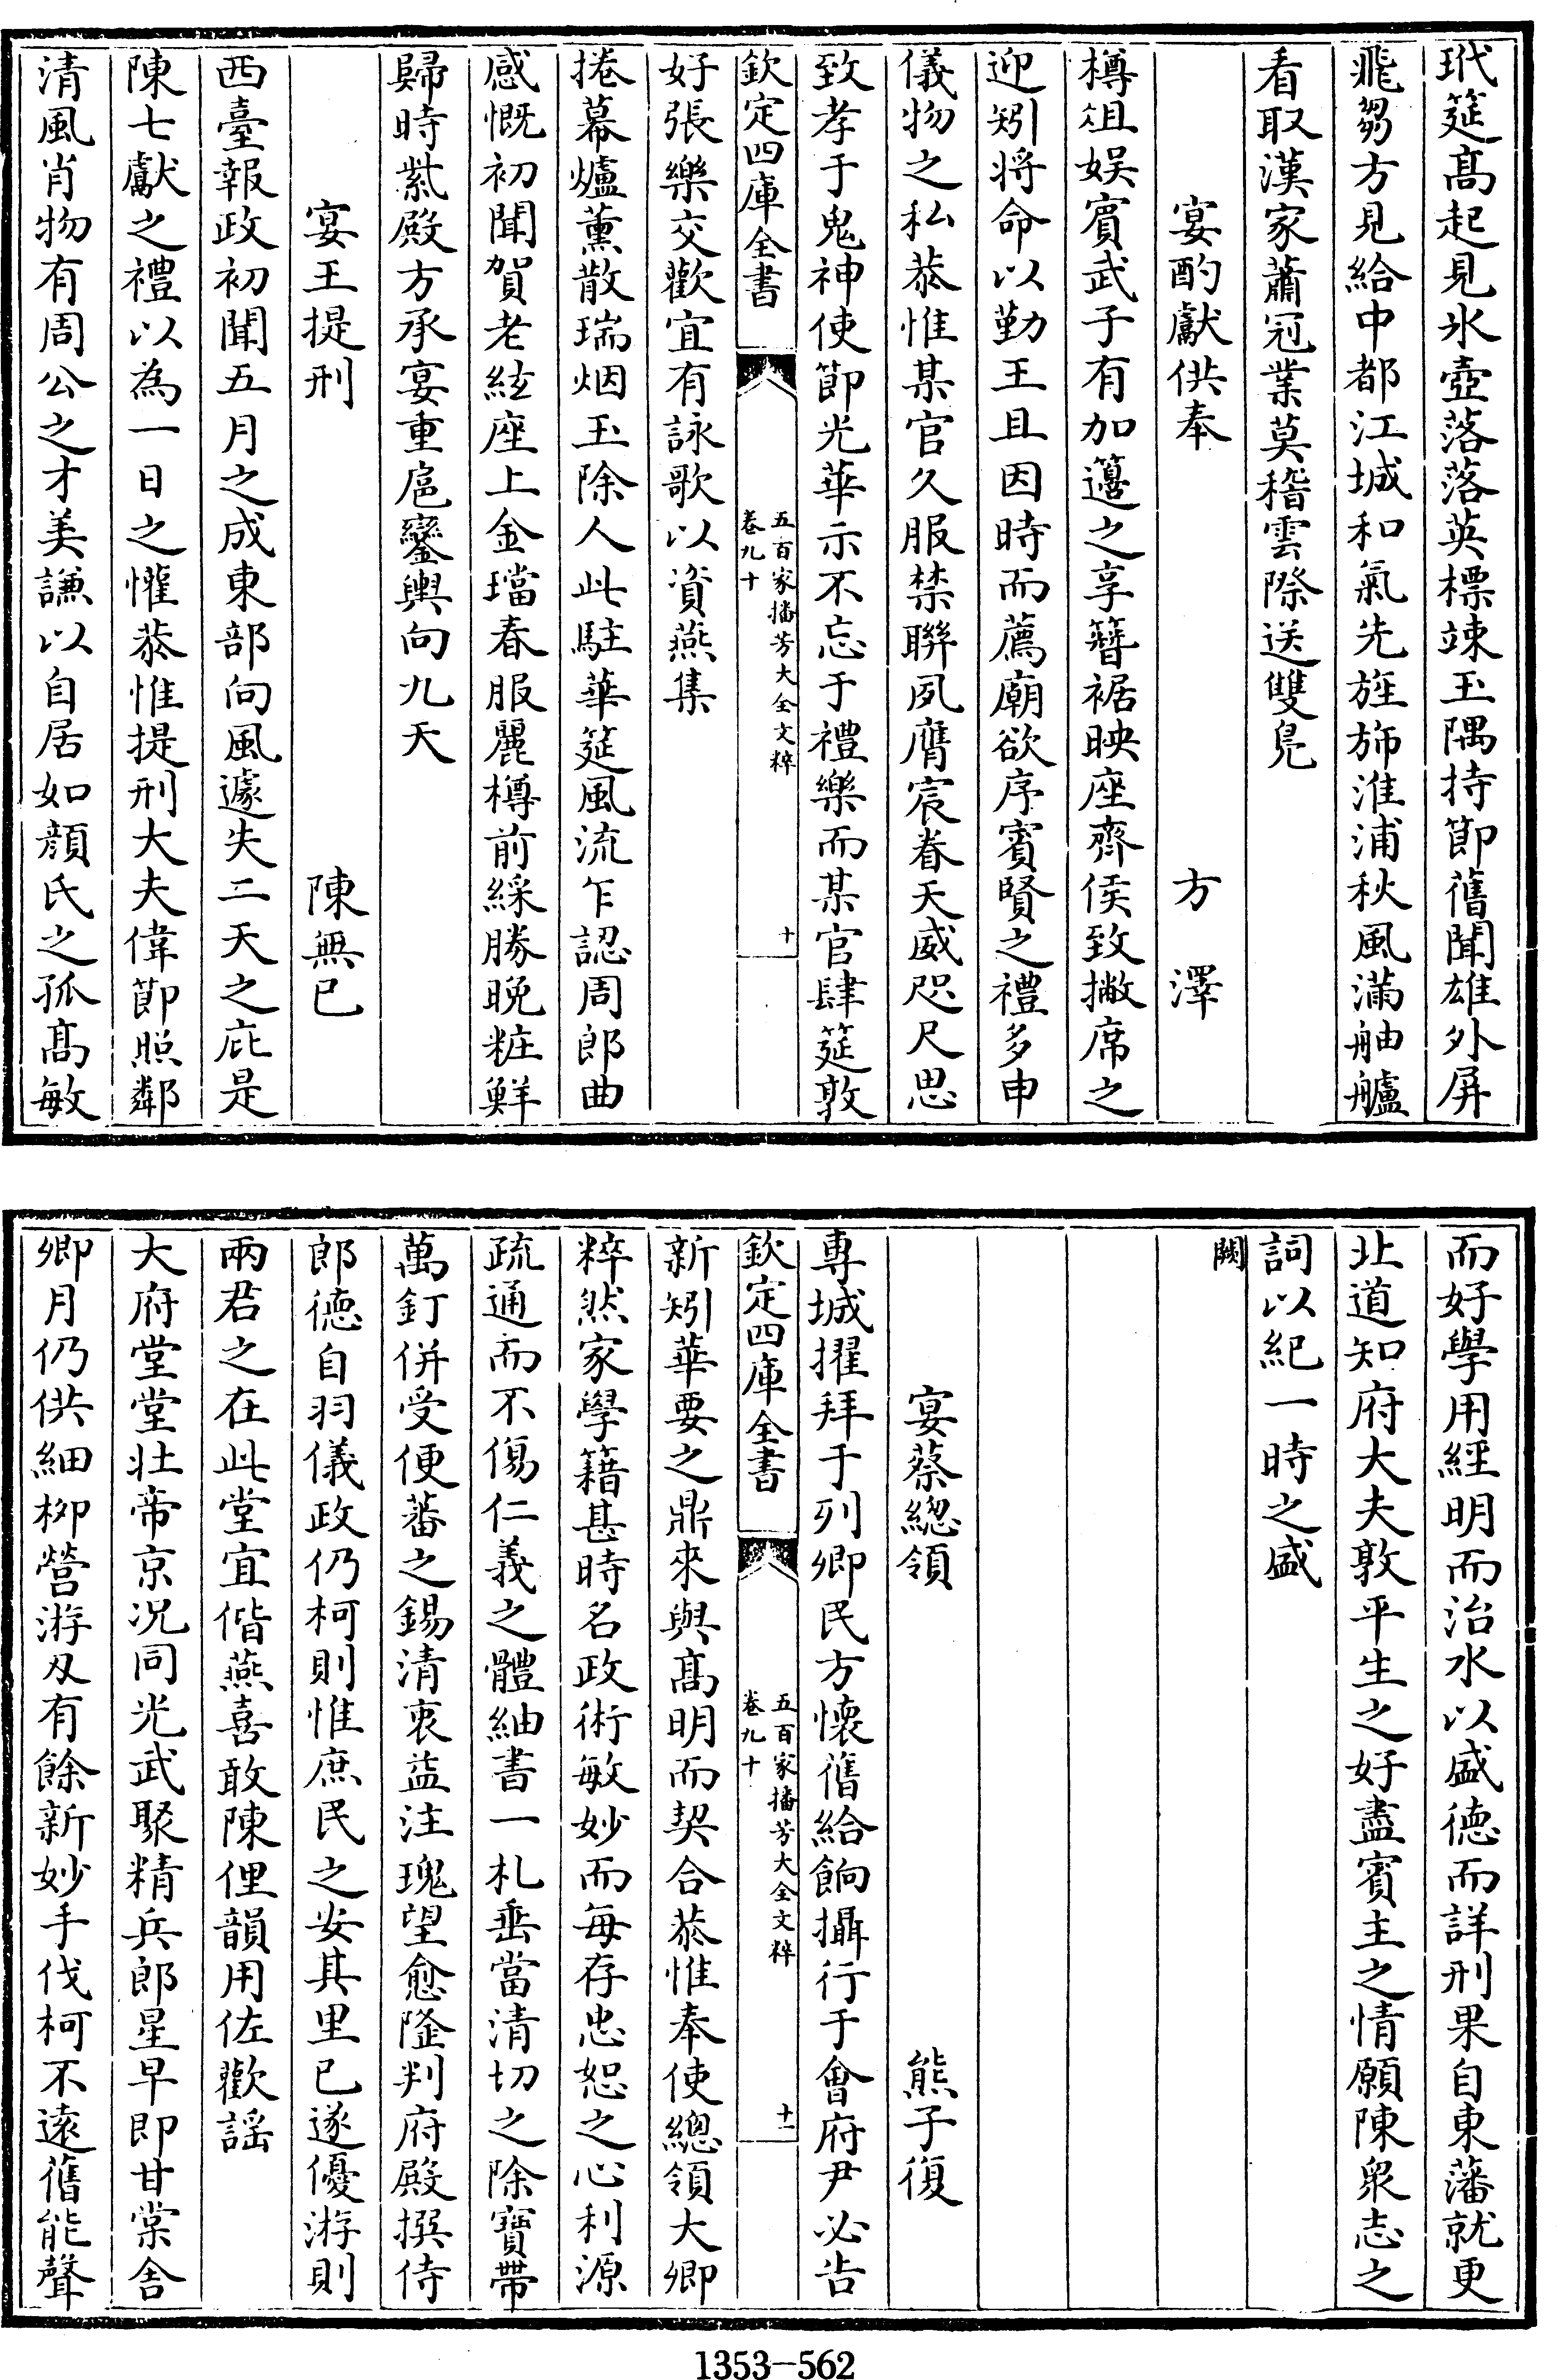 玳筵髙起見氷壺落落英標竦玉隅持節舊聞雄外屏
飛芻方見給中都江城和氣先旌斾淮浦秋風滿舳艫
看取漢家蕭冠業莫稽雲際送雙鳬
宴酌獻供奉　方澤
樽俎娱賓武子有加籩之享簪裾映座齊侯致撇席之
迎矧将命以勤王且因時而薦廟欲序賓賢之禮多申
儀物之私恭惟某官久服禁聯夙膺宸眷天威咫尺思
致孝于鬼神使節光華示不忘于禮樂而某官肆筵敦
欽定四庫全書
五百家播芳大全文粹
卷九十
十
好張樂交歡宜有詠歌以資燕集
捲幕爐薰散瑞烟玉除人此駐華筵風流乍認周郎曲
感慨初聞賀老絃座上金璫春服麗樽前綵勝晚粧鮮
歸時紫殿方承宴重扈鑾輿向九天
宴王提刑　陳無已
西臺報政初聞五月之成東部向風遽失二天之庇是
陳七獻之禮以為一日之懽恭惟提刑大夫偉節照鄰
清風肖物有周公之才美謙以自居如顔氏之孤髙敏
而好學用經明而治水以盛德而詳刑果自東藩就更
北道知府大夫敦平生之好盡賓主之情願陳衆志之
詞以紀一時之盛
闕
宴蔡總領　熊子復
專城擢拜于列卿民方懷舊給餉攝行于會府尹必告
欽定四庫全書
五百家播芳大全文粹
卷九十
十一
新矧華要之鼎來與髙明而契合恭惟奉使總領大卿
粹然家學籍甚時名政術敏妙而每存忠恕之心利源
疏通而不傷仁義之體紬書一札垂當清切之除寶帶
萬釘併受便蕃之錫清衷益注瑰望愈隆判府殿撰侍
郎德自羽儀政仍柯則惟庶民之安其里已遂優游則
兩君之在此堂宜偕燕喜敢陳俚韻用佐歡謡
大府堂堂壯帝京况同光武聚精兵郎星早即甘棠舍
卿月仍供細栁營游刄有餘新妙手伐柯不遠舊能聲
1353—562